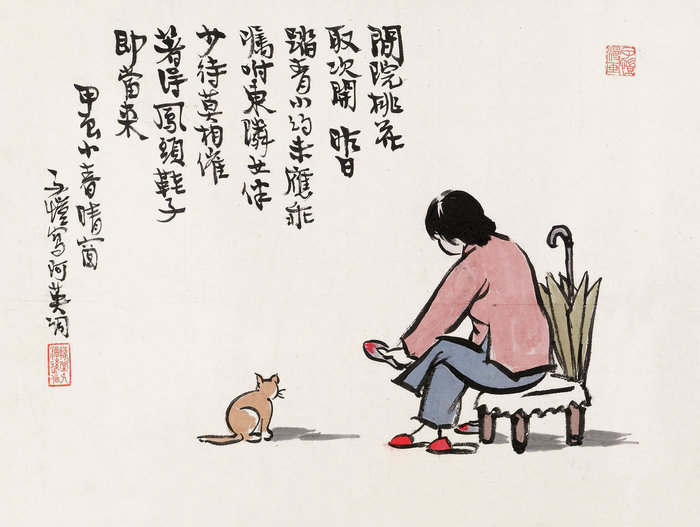 閒院桃花
取次開 昨日
踏青小約未應乖
囑咐東隣女伴
少待莫相催
著得鳳頭鞋子
即當來
甲辰小春晴窗
子愷寫阿英詞
子愷漫畫